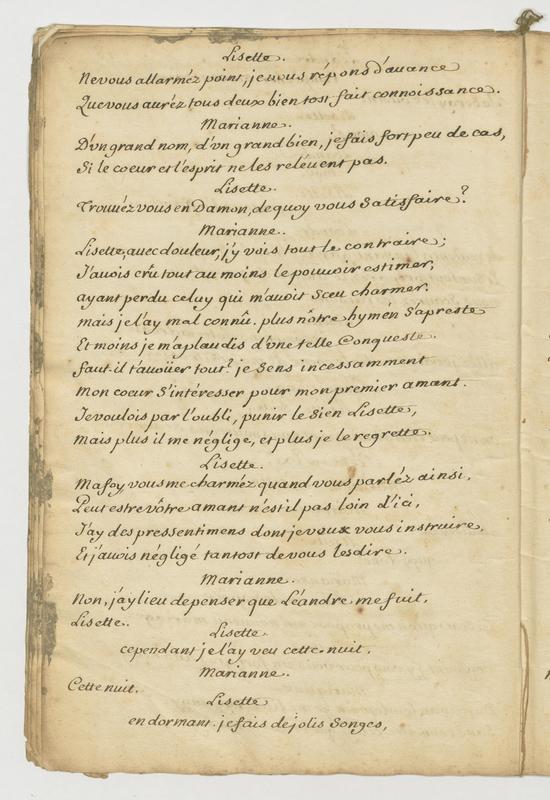 Lisette.
Ne vous allarméz point, je vous réponds d'auance
Que vous auréz tous deux bien tost fait connoissance.
Marianne.
D'vn grand nom, d'vn grand bien, je fais fort peu de cas,
Si le coeur et l'esprit ne les reléuent pas.
Lisette.
Trouuéz vous en Damon, de quoy vous Satisfaire?
Marianne.
Lisette, auec douleur, j'y vois tout le contraire;
J'auois crû tout au moins le pouuoir estimer,
ayant perdu celuy qui m'auoit Sceu charmer.
mais je l'ay mal connû. plus nôtre hymén S'apreste
Et moins je m'aplaudis d'vne telle Conqueste.
faut-il t'auoüer tout? je Sens incessamment
mon coeur S'intéresser pour mon premier amant.
Je voulois par l'oubli, punir le Sien Lisette,
mais plus il me néglige, et plus je le regrette.
Lisette.
Ma foy, vous me charméz quand vous parléz ainsi,
Peut estre vôtre amant n'est il pas loin d'ici,
J'ay des pressentimens dont je veux vous instruire,
Et j'auois négligé tantost de vous les dire.
Marianne.
Non, j'ay lieu de penser que Léandre me fuit,
Lisette.
Lisette.
cependant je l'ay veu cette nuit.
Marianne.
Cette nuit.
Lisette
en dormant. je fais de jolis Songes,